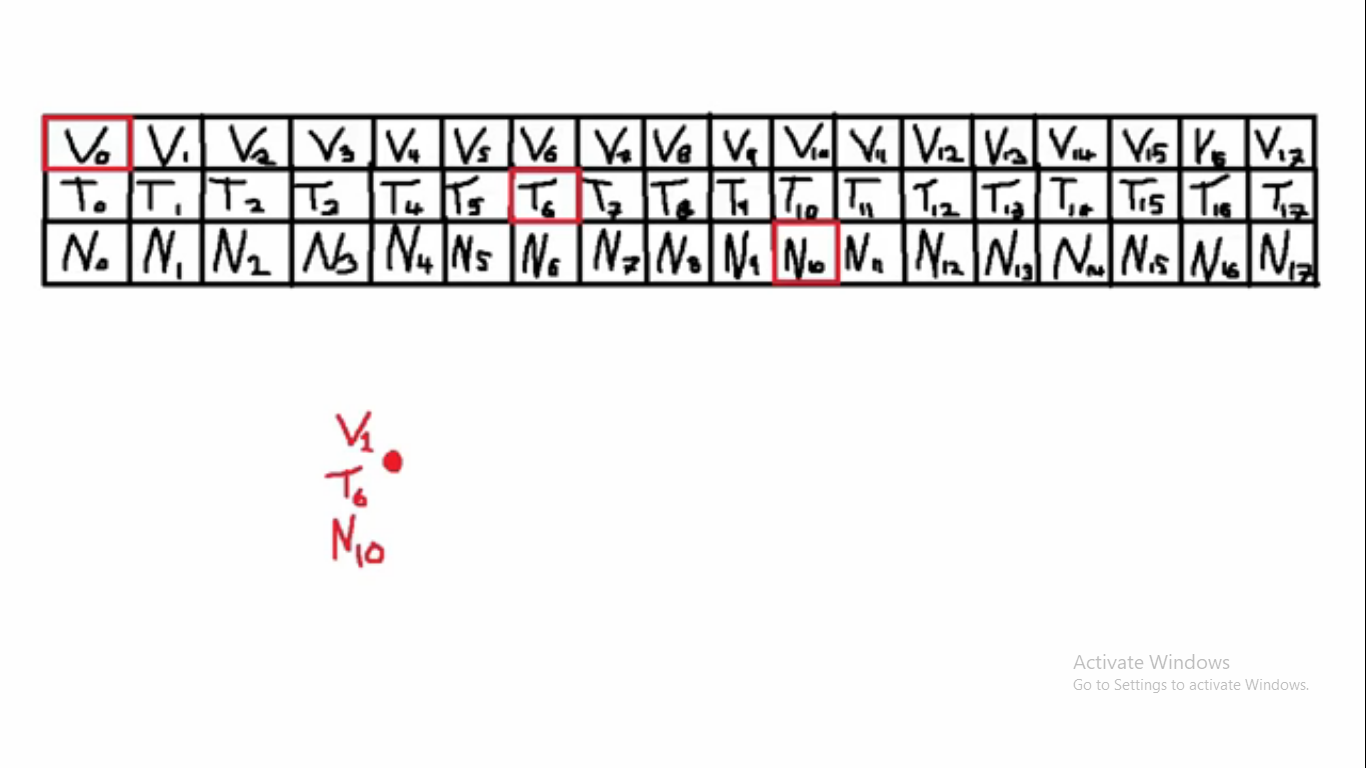 V0 V1 V2 V3 V4 V5 V6 V7 V8 V9 V10 V11 V12 V13 V14 V15 V16 V17
T0 T1 T2 T3 T4 T5 T6 T7 T8 T9 T10 T11 T12 T13 T14 T15 T16 T17
N0 N1 N2 N3 N4 N5 N6 N7 N8 N9 N10 N11 N12 N13 N14 N15 N16 N17
V1
T6
N10
Activate Windows
Go to Settings to activate Windows.